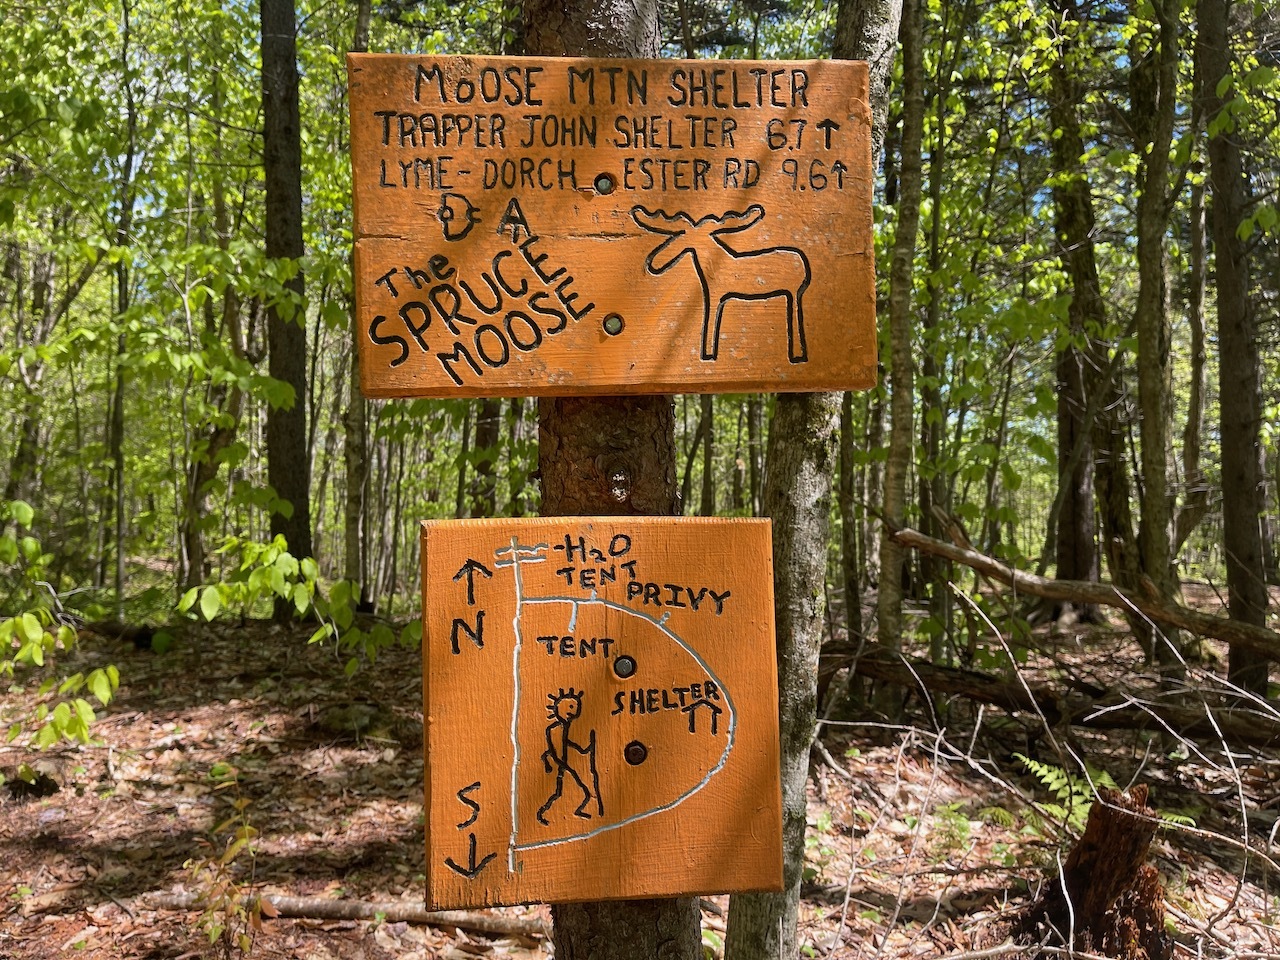 MOOSE MTN SHELTER
TRAPPER JOHN SHELTER 6.7 ↑
LYME-DORCH ESTER RD 9.6 ↑
The
SPRUCE
MOOSE
-H2O
TENT
PRIVY
N
TENT
SHELTER
S